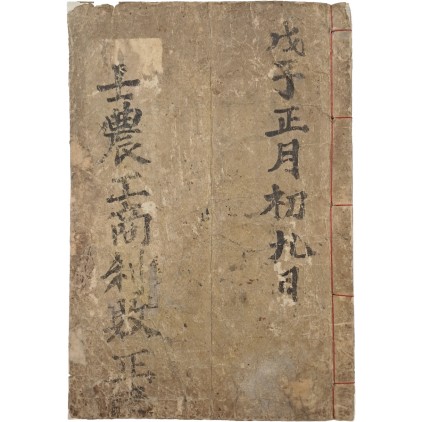 戊子正月初九日
士農工商利敗正